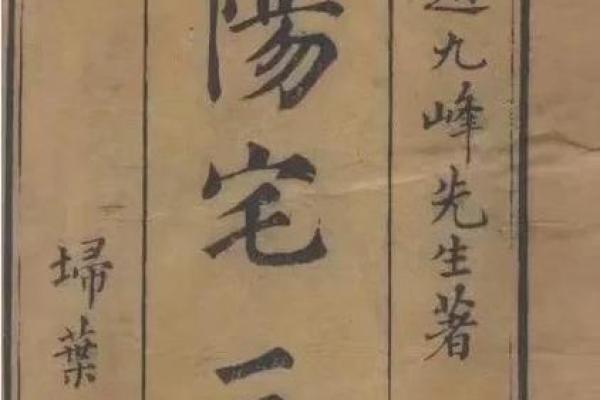 九峰先生著
陽宅三
埽葉